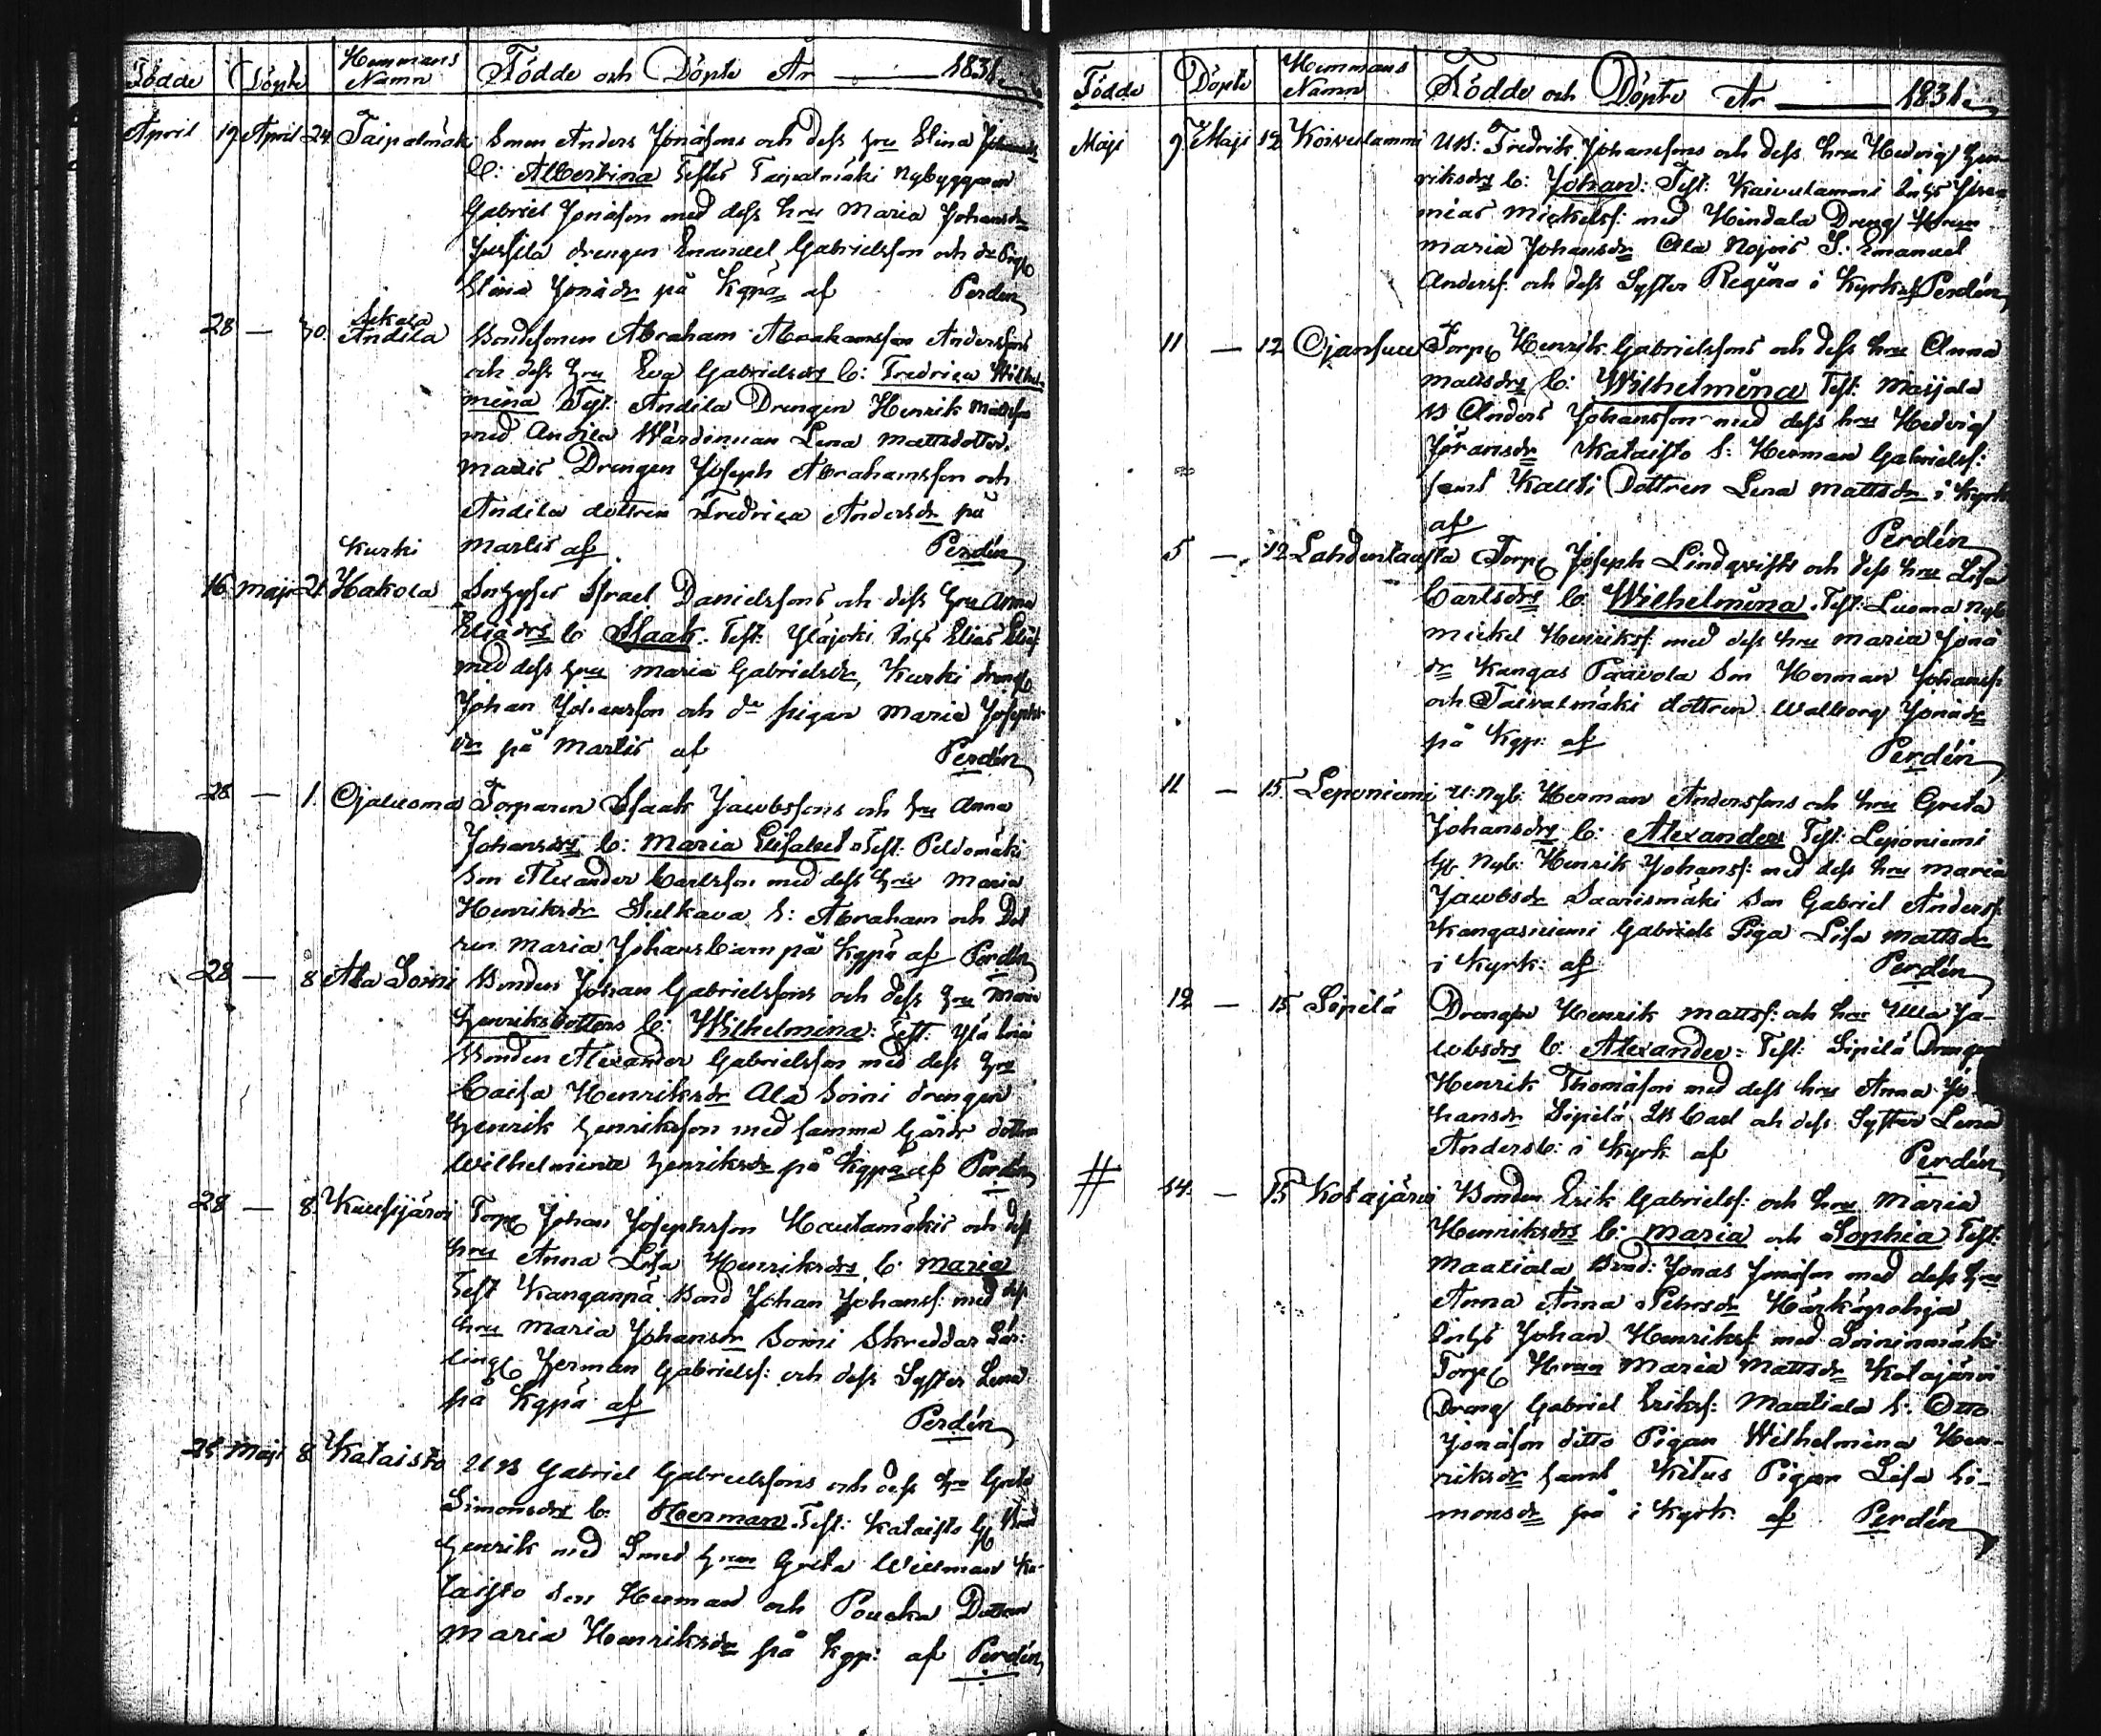 Födde Döpte Hemmans Namn Födde och Döpte År 1831.
April 19 April 24 Taipalmäki Sonen Anders Jonasons och dess hru Elina
B: Albertina Testes Taipalmäki Nybyggaren
Gabriel Jonason med dess hru Maria Johansdr
Jussila drengen Emanuel Gabrielsson och do Pig
Elina Jonædr på Kgpä af Perdén
28 — 30. Andila Bondesonen Abraham Abrahamsson Anderssons
och dess hru Eva Gabrielsdrs b: Fredrica Wilhel-
mina Test: Andila Drengen Henrik Mattsson
med Andila Wärdinnan Lena Mattsdotter.
Maxis Drengen Joseph Abrahamsson och
Andila dottren Fredrica Andersdr på
Kurki Martis af Perdén
16 Maji 21. Hakola Inhyses Israel Danielssons och dess hru Anna
Eliædrs b Isaak. Test: Yläjoki Inhs Elias
med dess hru Maria Gabrielsdr, Kurki dreng
Johan Johansson och do pigan Maria Josephs
dr på Martis af Perdén
28 — 1. Ojaluoma Torparen Isaak Jacobssons och hru Anna
Johansdrs b: Maria Elisabet Test: Peldomäki
Son Alexander Carlsson med dess hru Maria
Henriksdr Sulkava S: Abraham och Dot
ren Maria Johansbarn på Kgpä af Perdén
28 — 8 Ala Soini Bonden Johan Gabrielssons och dess hru Maria
Henriksdotters b: Wilhelmina: Test: Ylä Soini
Bonden Alexander Gabrielsson med dess hru
Caisa Henriksdr Ala Soini drengen
Henrik Henriksson med samma Gårds dottren
Wilhelmina Henriksdr på Kgpä af Perdén
28 — 8. Kuusijärvi Torp Johan Josephsson Hautamäkis och dess
hru Anna Lisa Henriksdrs b: Maria
Test Kanganpä Bond Johan Johanss: med dess
hru Maria Johansdr Soini Skreddar Lär-
ling Herman Gabrielss: och dess Syster Lena
på Kgpä af Perdén
25 Maji 8 Kataisto U B Gabriel Gabrielssons och dess hru Greta
Simonsdrs b. Herman. Test: Kataisto Bond
Henrik med Smed hrun Greta Willman Ka-
taisto Son Herman och Poucka Dottren
Maria Henriksdr på Kgp: af Perdén
Födde Döpte Hemmans Namn Födde och Döpte År 1831.
Maji 9. Maji 12 Koivulammi U B: Fredrik Johanssons och dess hru Hedvig Hen-
riksdrs b: Johan: Test: Kaivulammi Inhs Jere-
mias Mickelss: med Hindala Dreng Hrun
Maria Johansdr Ala Nojois S. Emanuel
Anderss: och dess Syster Regina i Kyrk af Perdén
11 — 12 Ojansuu Torp Henrik Gabrielssons och dess hru Anna
Mattsdrs b: Wilhelmina Test: Maijala
B Anders Johansson med dess hru Hedvig
Göransdr Kataisto S: Herman Gabrielss:
samt Kauti Dottren Lena Mattsdr i Kyrk
af Perdén
5 — 12 Lahdentausta Torp Joseph Lindqvists och dess hru Lisa
Carlsdrs b: Wilhelmina. Test: Luoma Nyb
Mickel Henrikss: med dess hru Maria Jonæ
dr Kangas Paavola Son Herman Johanss:
och Taivalmäki dottren Walborg Jonædr
på Kgp: af Perdén
11 — 15. Leponiemi U: Nyb: Herman Anderssons och hru Greta
Johansdrs b: Alexander Test: Leponiemi
Nyb: Henrik Johanss: med dess hru Maria
Jacobsdr Saarismäki Son Gabriel Anderss:
Kangasniemi Gabriels Piga Lisa Mattsdr
i Kyrk: af Perdén
12 — 15 Sipilä Drengen Henrik Mattss: och hru Ulla Ja-
cobsdrs b: Alexander: Test: Sipilä Drengen
Henrik Thomason med dess hru Anna Jo-
hansdr Sipilä Carl och dess Syster Lena
Andersb: i Kyrk af Perdén
# 14. — 15 Kotajärvi Bonden Erik Gabrielss: och hru Maria
Henriksdrs b: Maria och Sophia Test:
Maaliala Bond: Jonas Jonason med dess hru
Anna Anna Pehrsdr Härkägrohija
Inhs Johan Henrikss: med Soininmäki
Torp Hrun Maria Mattsdr Kotajärvi
Dreng Gabriel Erikss: Maaliala S. Otto
Jonason ditto Pigan Wilhelmina Hen-
riksdr samt Kitus Pigan Lisa Si-
monsdr på i Kyrk. af Perdén